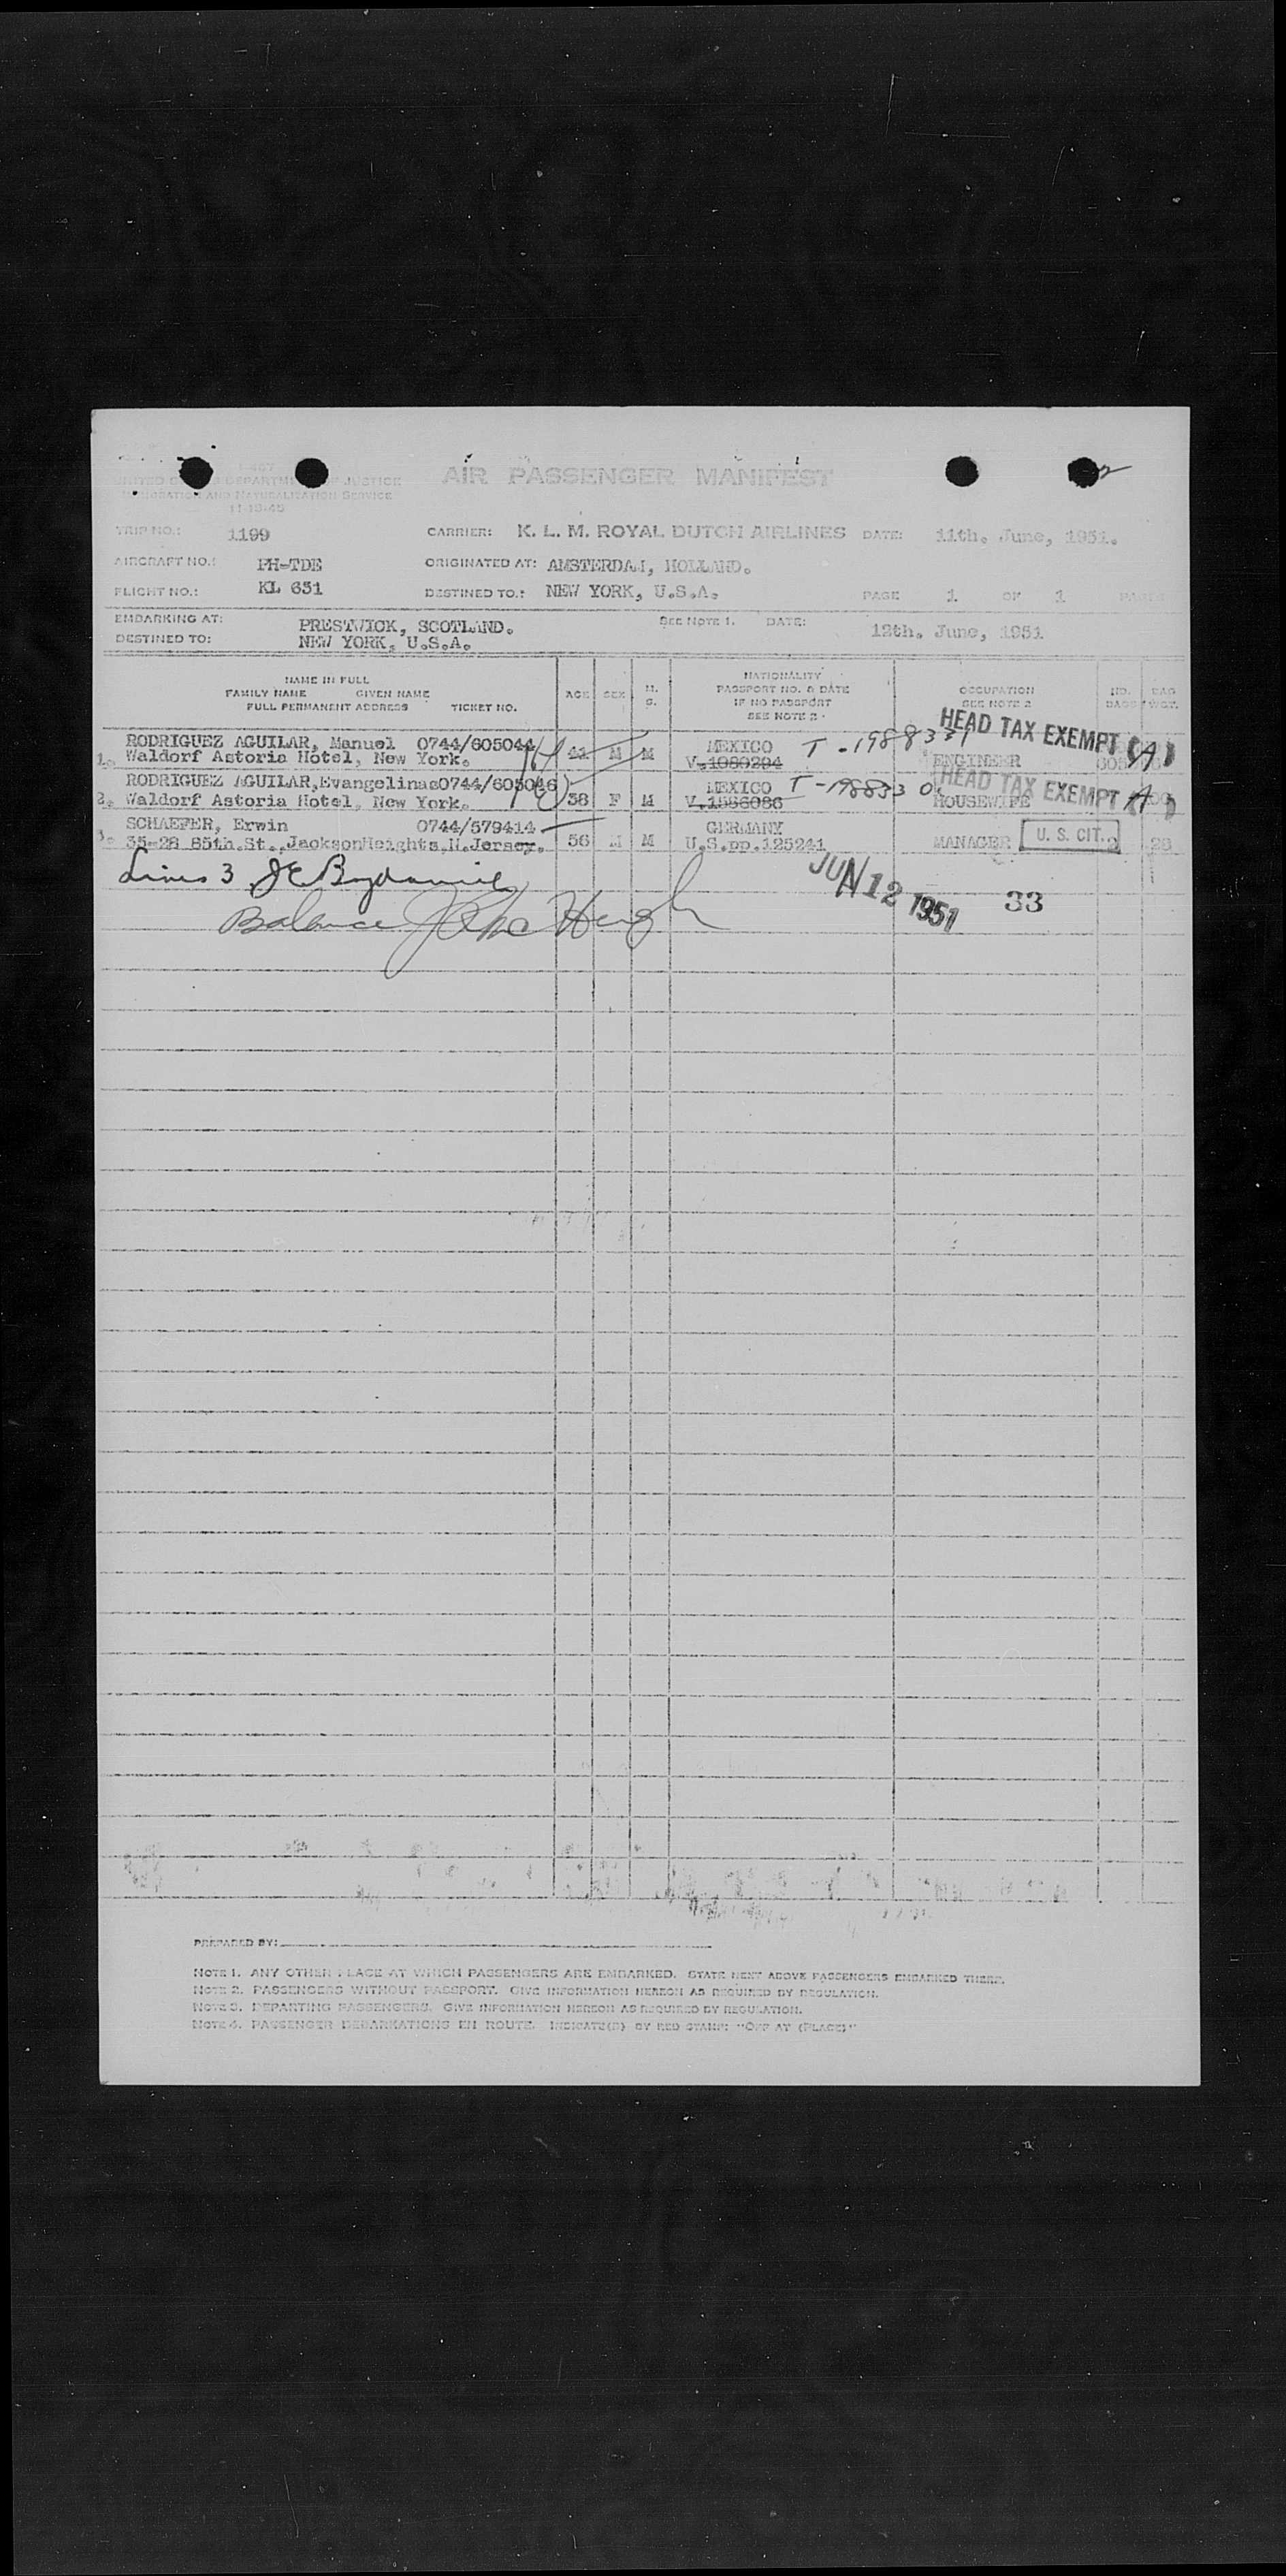 I-467
UNITED DEPARTMENT JUSTICE
IMMIGRATION AND NATURALIZATION SERVICE
11-13-45
AIR PASSENGER MANIFEST
2
TRIP NO.: 1199 CARRIER: K. L. M. ROYAL DUTCH AIRLINES DATE: 11th. June, 1951.
AIRCRAFT NO.: PH-TDE ORIGINATED AT: AMSTERDAM, HOLLAND.
FLIGHT NO.: KL 631 DESTINED TO.: NEW YORK, U.S.A. PAGE 1 OF 1 PAGES
EMBARKING AT: PRESTWICK, SCOTLAND. SEE NOTE 1. DATE: 12th. June, 1951
DESTINED TO: NEW YORK, U.S.A.
NAME IN FULL
FAMILY NAME GIVEN NAME
FULL PERMANENT ADDRESS TICKET NO.
AGE SEX M. S.
NATIONALITY
PASSPORT NO. & DATE
IF NO PASSPORT
SEE NOTE 2
OCCUPATION
SEE NOTE 2
NO. BAGS BAG WGT.
RODRIGUEZ AGUILAR, Manuel 0744/605044 MEXICO T-1988331 HEAD TAX EXEMPT (A)
1. Waldorf Astoria Hotel, New York. 41 M M V.1989294 ENGINEER
RODRIGUEZ AGUILAR,Evangelinas0744/605046 MEXICO T-1988330 HEAD TAX EXEMPT (A)
2. Waldorf Astoria Hotel, New York. 38 F M V.1586086 HOUSEWIFE
SCHAEFER, Erwin 0744/579414 GERMANY
3. 35-28 85th.St.,JacksonHeights,N.Jersey. 56 M M U.S.pp.125241 MANAGER U. S. CIT. 2 28
Lines 3
JUN 12 1951 33
Balance
PREPARED BY:
NOTE 1. ANY OTHER PLACE AT WHICH PASSENGERS ARE EMBARKED. STATE NEXT ABOVE PASSENGERS EMBARKED THERE.
NOTE 2. PASSENGERS WITHOUT PASSPORT. GIVE INFORMATION HEREON AS REQUIRED BY REGULATION.
NOTE 3. DEPARTING PASSENGERS. GIVE INFORMATION HEREON AS REQUIRED BY REGULATION.
NOTE 4. PASSENGER DEBARKATIONS EN ROUTE. INDICATE(D) BY RED STAMP: "OFF AT (PLACE)"